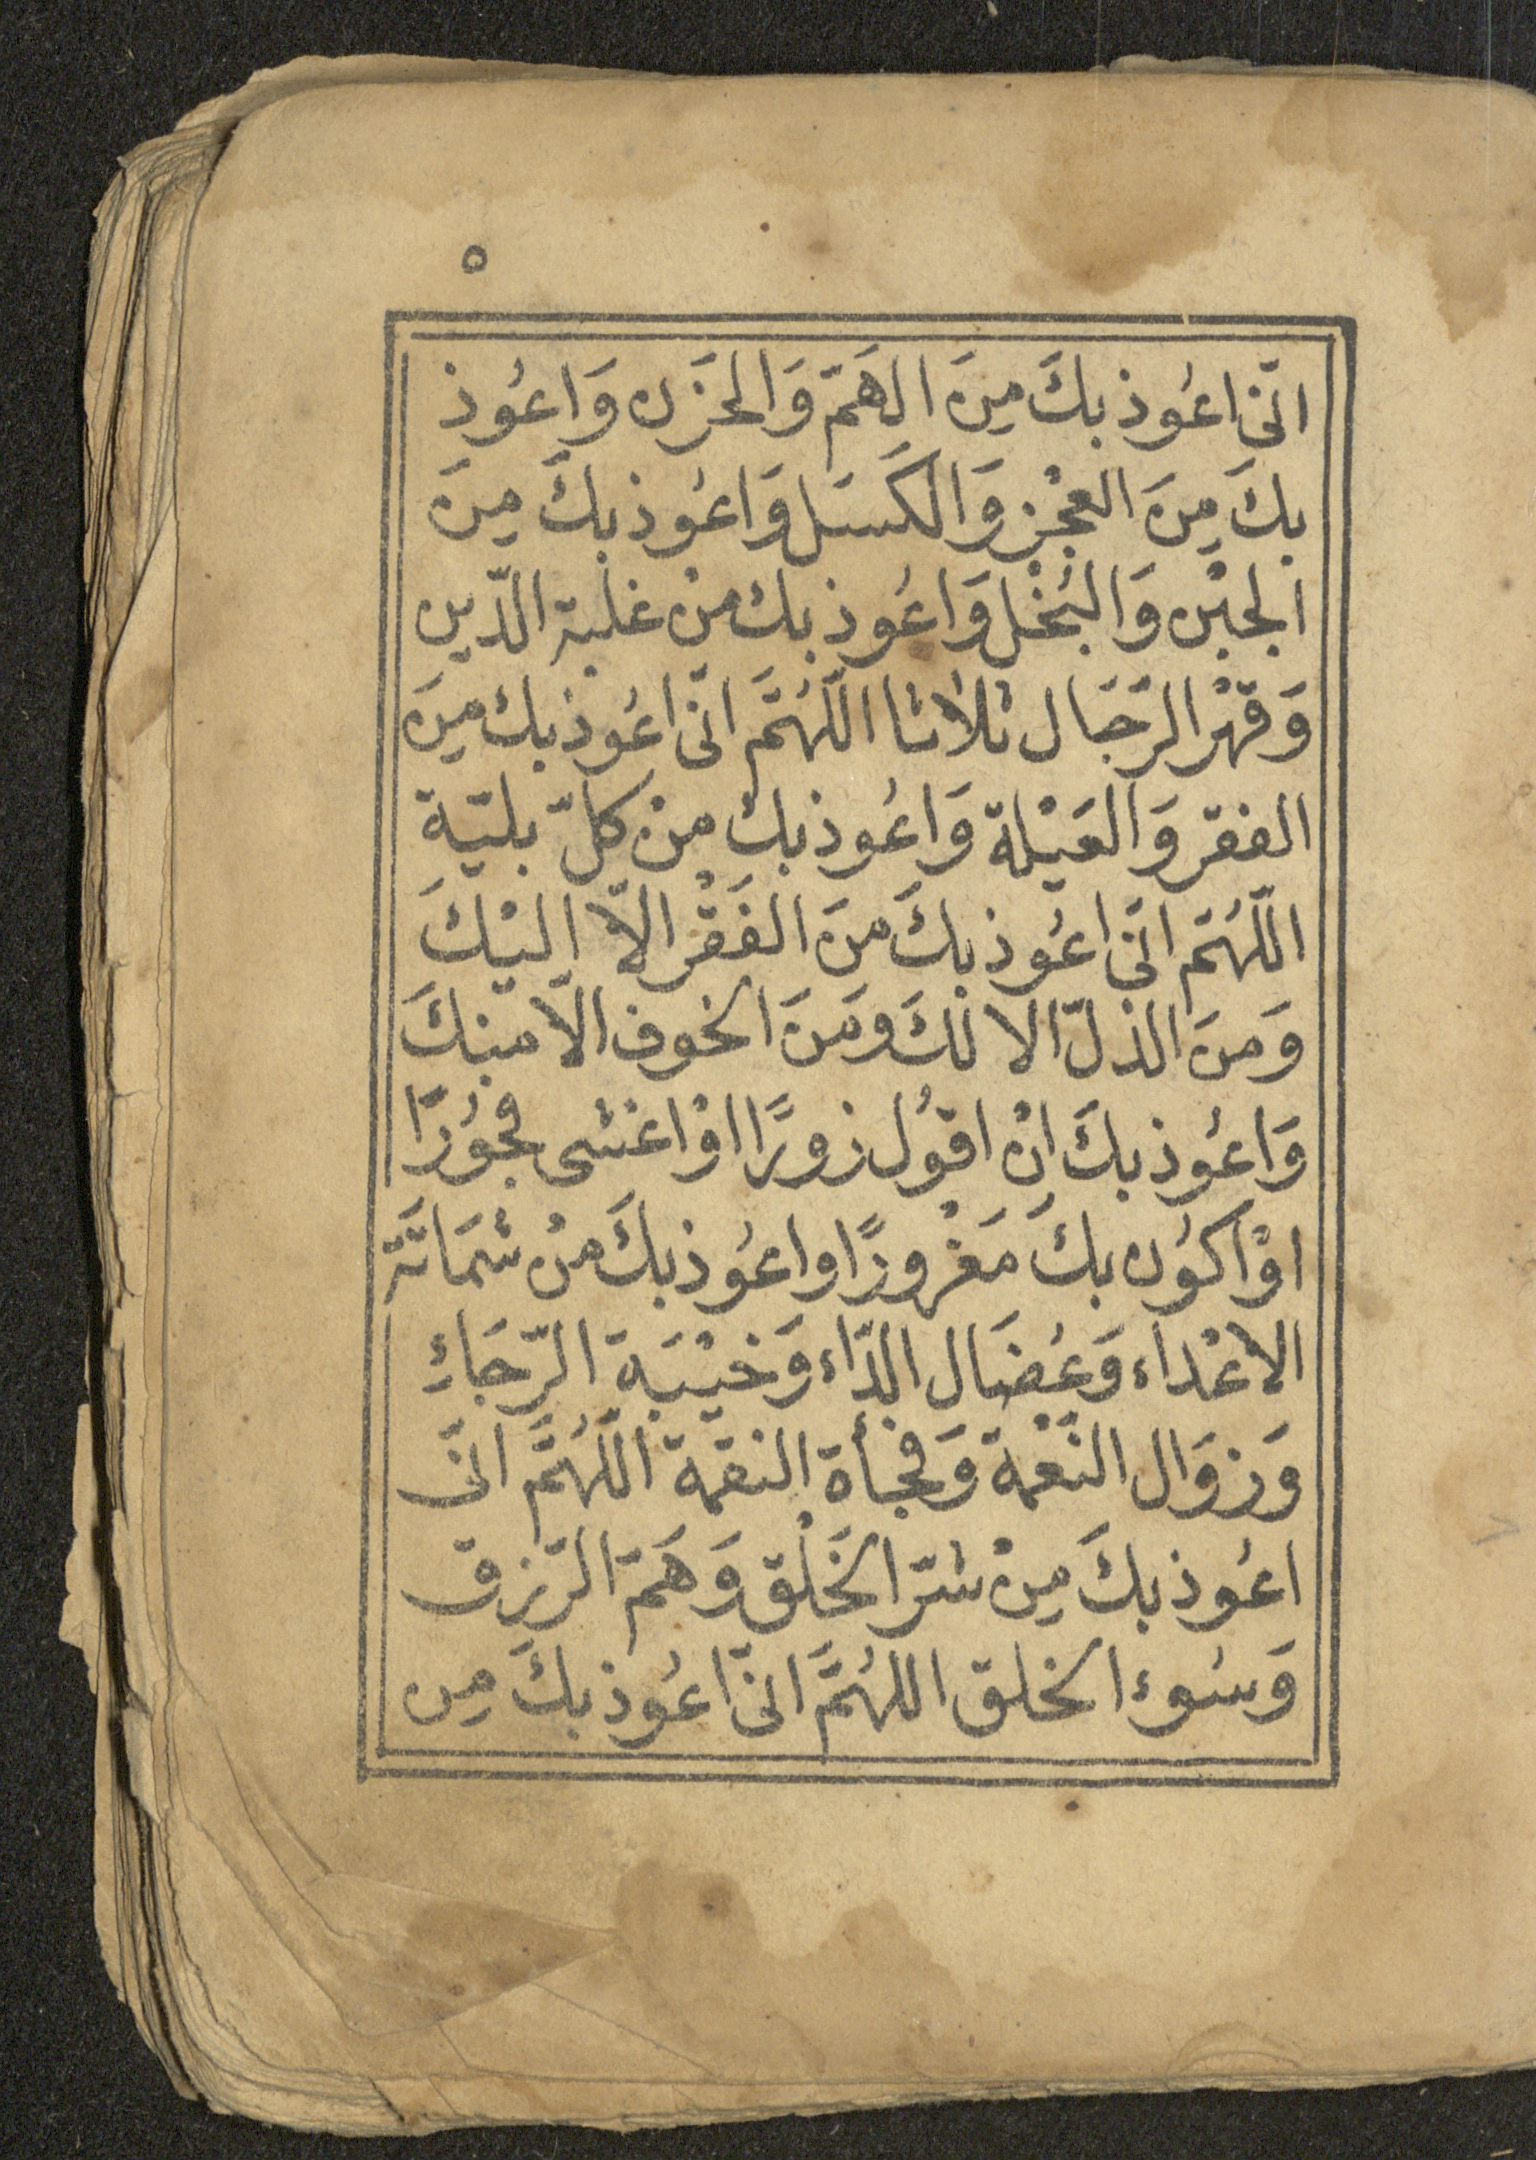 ٥
انّى اعُوذ بكَ مِنَ الهَمّ وَالحَزَن وَاعُوذ
بكَ مِنَ العجْز وَالكَسَل وَاعُوذ بكَ مِنَ
الجبْن وَالبُخْل وَاعُوذ بك منْ غلبة الدّين
وَقهْر الرّجَال ثلاثا اللّهُمَّ انّى اعُوذ بك مِنَ
الفقر وَالعَيْلة وَاعُوذ بك منْ كلّ بليّة
اللّهُمّ انّى اعُوذ بكَ منَ الفَقْر الاّ اليْكَ
وَمنَ الذلّ الا لكَ وَمنَ الخوف الاّ منكَ
وَاعُوذ بكَ انْ اقوُل زورًا اوْ اغشى فجُورًا
اوْ اكوُن بكَ مَغْرورًا واعُوذ بكَ منْ شمَاتَة
الاعْداء وَعُضَال الدّاء وَخيْبَة الرّجَاءِ
وَزوَال النّعْمة وَفجأة النقمة اللّهُمَّ انّى
اعُوذ بكَ مِنْ شرّ الخَلْق وَهَمّ الرّزق
وَسُوء الخلق اللهُمَّ انّى اعُوذ بكَ مِن